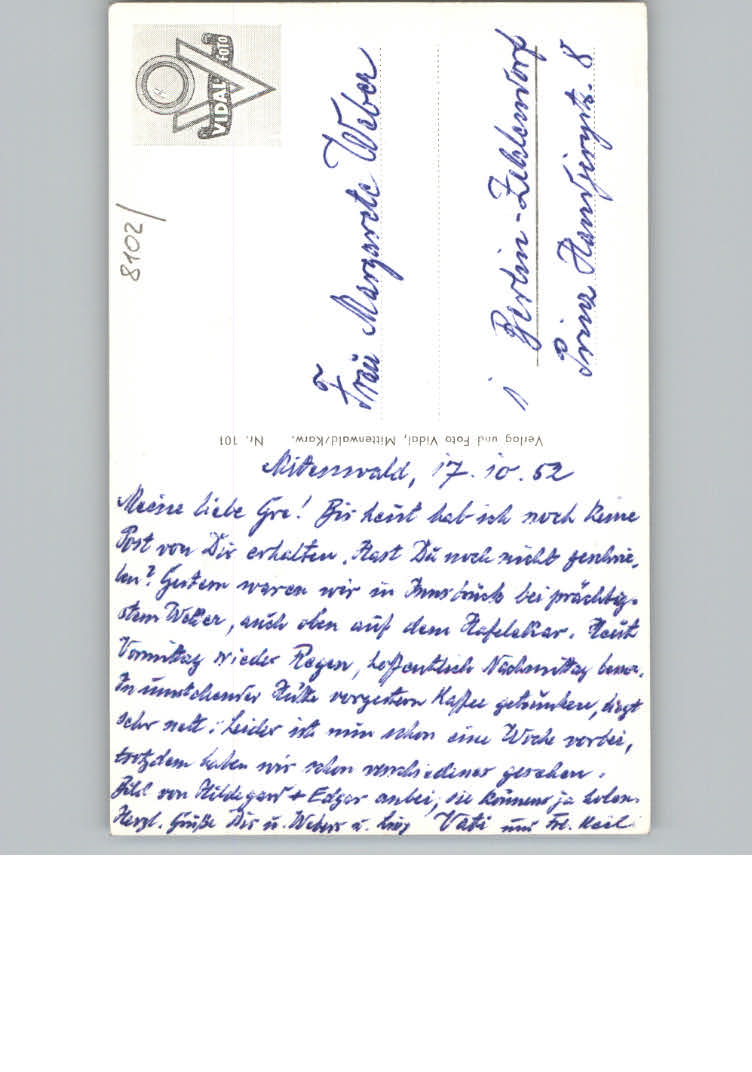 VIDAL FOTO
8102/
Frau Margarete Weber
1 Berlin-Zehlendorf
Prinz Handjerystr. 8
Verlag und Foto Vidal, Mittenwald/Karw. Nr. 101
Mittenwald, 17.10.52
Meine liebe Gre! Bis heut hab ich noch keine
Post von Dir erhalten. Hast Du noch nicht geschrie-
ben? Gestern waren wir in Innsbruck bei prächtig-
stem Wetter, auch oben auf dem Hafelekar. Heut
Vormittag wieder Regen, hoffentlich Nachmittag besser.
In umstehender Hütte vorgestern Kaffee getrunken, liegt
sehr nett. Leider ist nun schon eine Woche vorbei,
trotzdem haben wir schon verschiedenes gesehen.
Bild von Hildegard + Edgar anbei, sie können ja
Herzl. Grüße Dir u. Webers u. Vati und Frl. Keil